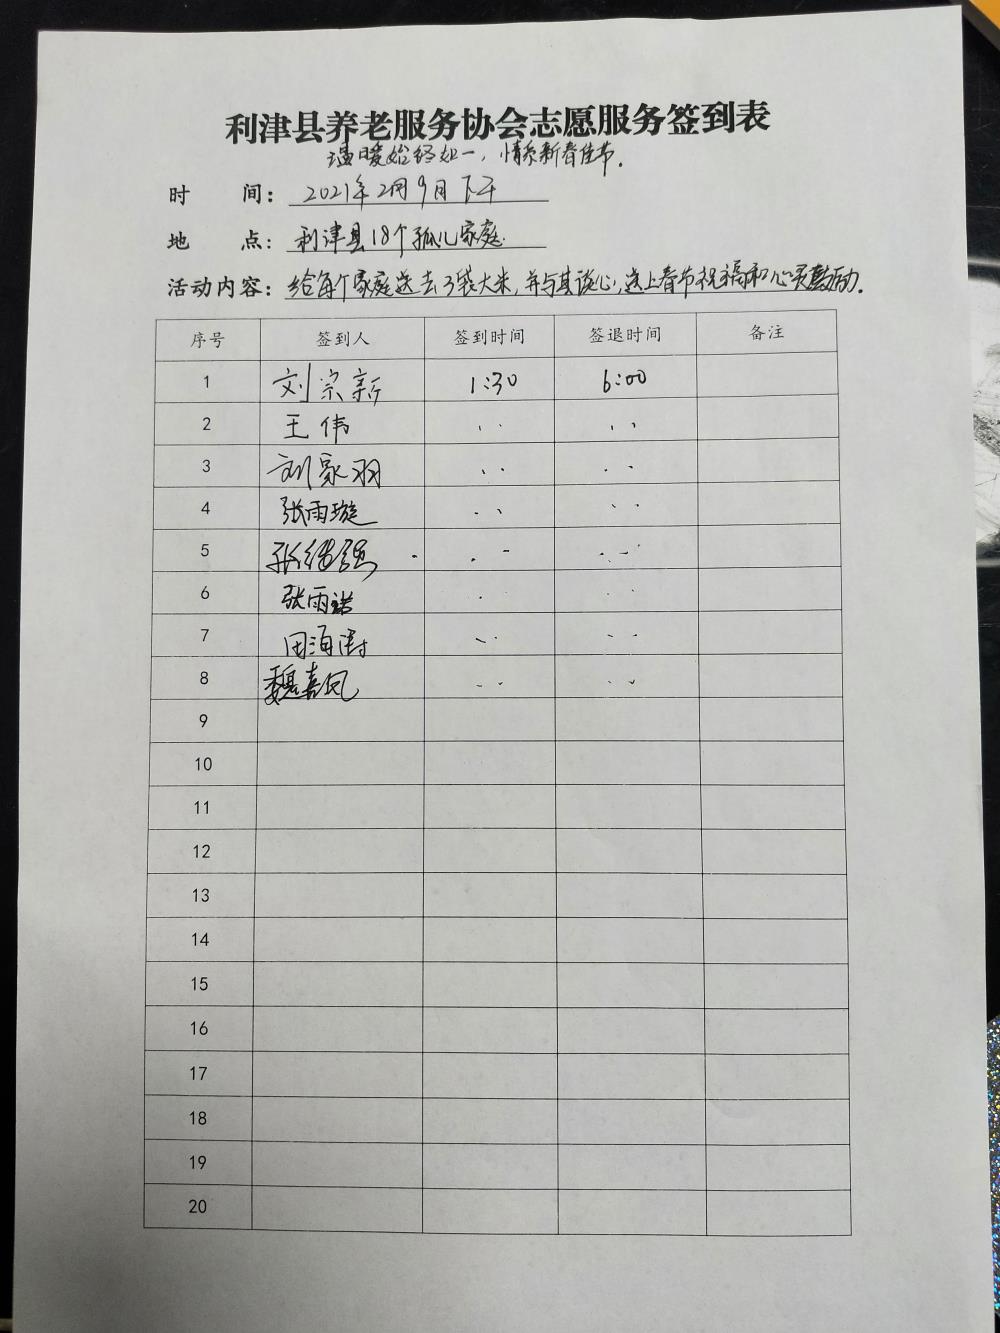 利津县养老服务协会志愿服务签到表
温暖始终如一，情系新春佳节.
时 间: 2021年2月9日下午
地 点: 利津县18个孤儿家庭.
活动内容: 给每个家庭送去3袋大米,并与其谈心,送上春节祝福和心灵鼓励.
序号 签到人 签到时间 签退时间 备注
1 刘宗新 1:30 6:00
2 王伟 ‥ ‥
3 刘家羽 ‥ ‥
4 张雨璇 ‥ ‥
5 ‥ ‥
6 张雨诺 ‥ ‥
7 田海涛 ‥ ‥
8 魏嘉凤 ‥ ‥
9
10
11
12
13
14
15
16
17
18
19
20